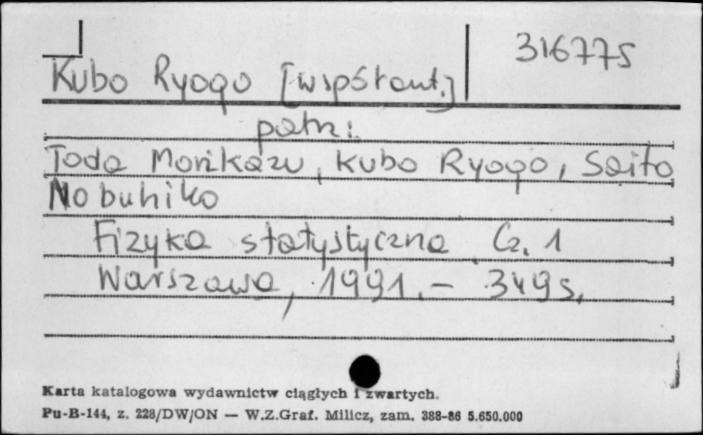 316775
Kubo Ryogo [współaut.]
patrz:
Toda Morikazu, Kubo Ryogo, Saito
Nobuhiko
Fizyka statystyczna Cz. 1
Warszawa, 1991.- 349s.
Karta katalogowa wydawnictw ciągłych i zwartych.
Pu-B-144, z. 228/DW/ON — W.Z.Graf. Milicz, zam. 388-86 5.650.000